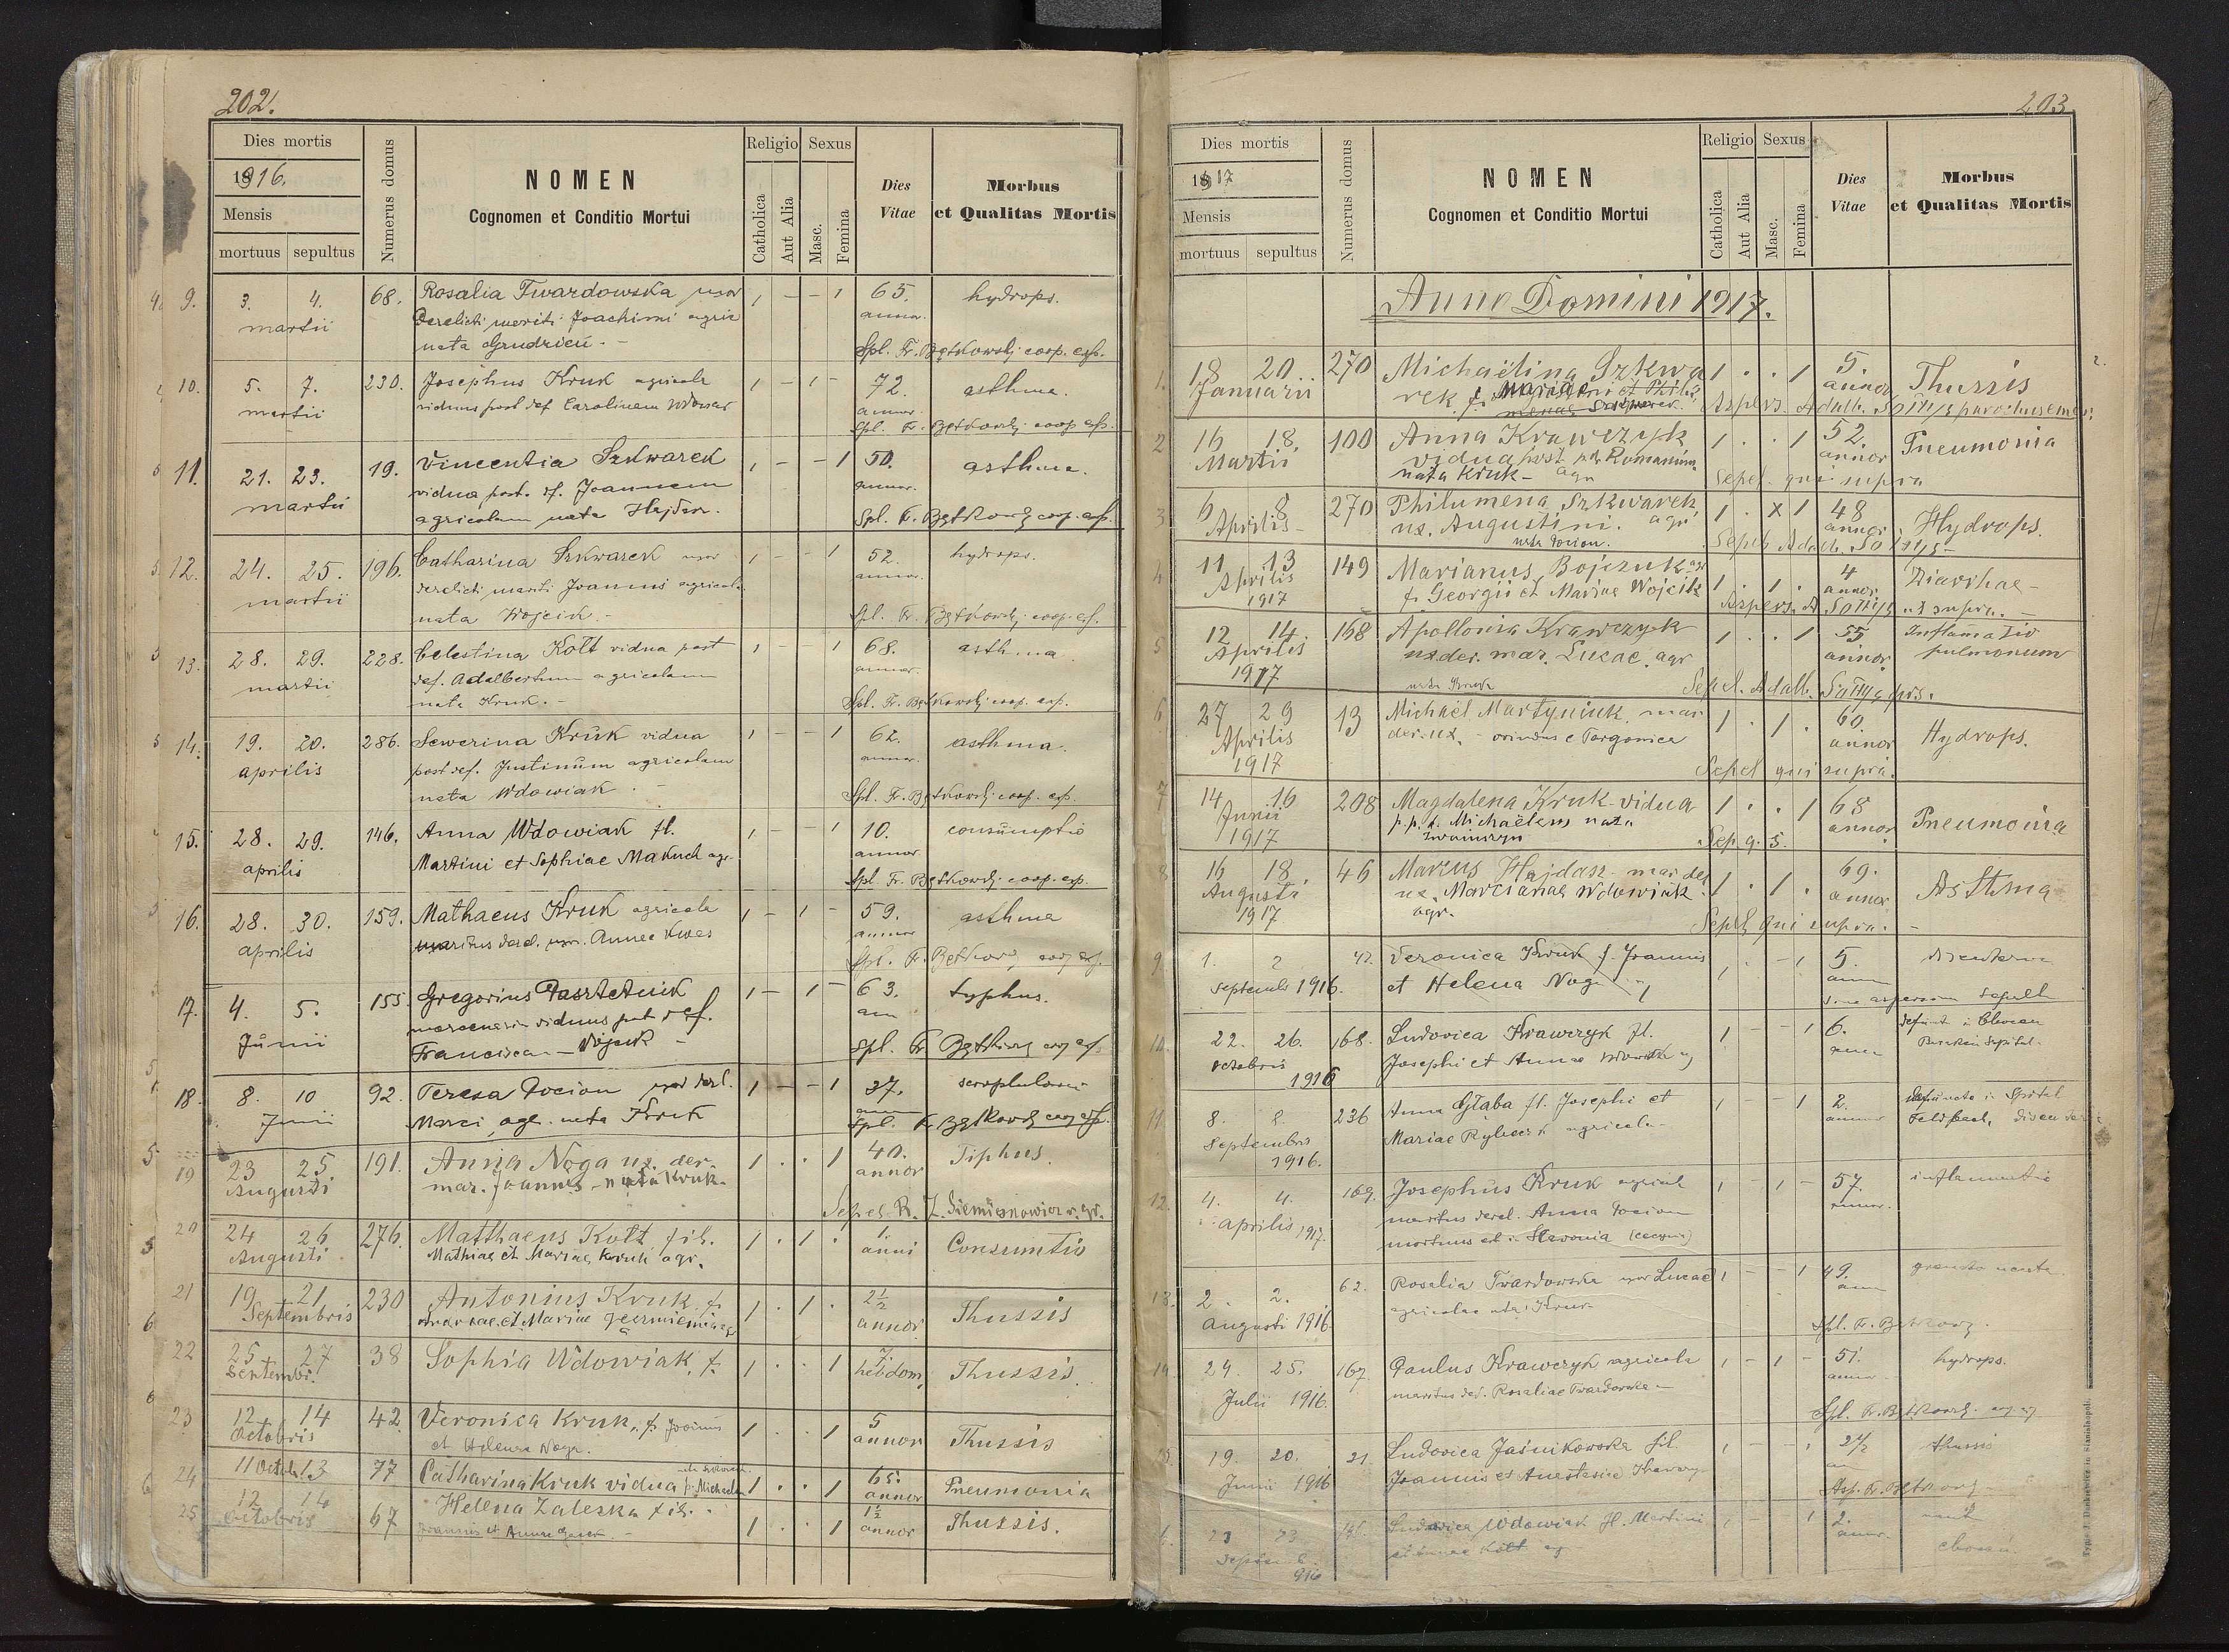 202.
Dies mortis
1916.
Mensis
mortuus sepultus
Numerus domus
NOMEN
Cognomen et Conditio Mortui
Religio Sexus
Catholica
Aut Alia
Masc.
Femina
Dies
Vitae
Morbus
et Qualitas Mortis
9. 3. 4. 68. Rosalia Twardowska uxor 1 - - 1 65. hydrops.
martii derelicti mariti Joachimi agric annor.
nata Grudzień. - Spl. Fr. Bętkowski coop. exp.
10. 5. 7. 230. Josephus Kruk agricola 1 - 1 - 72. asthma.
martii viduus post def Carolinam Wdowiak annor.
Spl. Fr. Bętkowski coop exp.
11. 21. 23. 19. Vincentia Szkwarek 1 - - 1 50. asthma.
martii vidua post. df. Joannem annor.
agricolam nata Hajdasz. Spl. Fr. Bętkowski coop. exp.
12. 24. 25. 196. Catharina Szkwarek uxor 1 - - 1 52. hydrops.
martii derelicti mariti Joannis agricola annor.
nata Wojcik - Spl. Fr. Bętkowski coop. exp.
13. 28. 29. 228. Celestina Kołt vidua post 1 - - 1 68. asthma
martii def. Adalbertum agricolam annor.
nata Kruk. - Spl. Fr. Bętkowski coop. exp.
14. 19. 20. 286. Sewerina Kruk vidua 1 - - 1 62. asthma.
aprilis post def. Justinum agricolam annor.
nata Wdowiak. - Spl. Fr. Bętkowski coop. exp.
15. 28. 29. 146. Anna Wdowiak fl. 1 - - 1 10. consumptio
aprilis Martini et Sophiae Makuch agr annor
Spl. Fr. Bętkowski coop. exp.
16. 28. 30. 159. Mathaeus Kruk agricola 1 - 1 - 59. asthma
aprilis maritus derel. uxor. Annae Kwas annor
Spl. Fr. Bętkows coop exp.
17. 4. 5. 155. Gregorius Pasztetnik 1 - 1 - 63. typhus.
Junii viduus post def. ann
Franciscam Wójcik - Spl. Fr. Bętkows coop exp.
18. 8. 10 92. Teresa Pocion uxor derel. 1 - - 1 37.
Junii Marci, agr. nata Kruk ann
Spl. Fr. Bętkowski coop exp.
19 23 25 191. Anna Noga ux. der. 1 . . 1 40. Tiphus.
Augusti mar. Joannis - nata Kruk - annor
Sepel. R. Z. Siemieńowicz r. gr.
20 24 26 276. Matthaeus Kołt fil. 1 . 1 . 1. Consumtio
Augusti Mathiae et Mariae Kruk agr. anni
21 19 21 230 Antonius Kruk f. 1 . 1 . 2½ Thussis
Septembris et Mariae annor
22 25 27 38 Sophia Wdowiak, f. 1 . . 1 7. Thussis.
Septembr. hebdom.
23 12 14 42 Veronica Kruk, f. Joannis 1 . . 1 5 Thussis
Octobris et Helenae Noga. annor
24 11 Octob. 13 77 Catharina Kruk vidua p. Michaele 1 . . 1 65. Pneumonia
annor
25 12 14 67 Helena Zaleska fil. 1 . . 1 1½ Thussis.
Octobris Joannis et Annae annor
203
Dies mortis
1917
Mensis
mortuus sepultus
Numerus domus
NOMEN
Cognomen et Conditio Mortui
Religio Sexus
Catholica
Aut Alia
Masc.
Femina
Dies
Vitae
Morbus
et Qualitas Mortis
Anno Domini 1917.
1. 18 20. 270 Michaëlina Szkwa 1 . . 1 5. Thussis
Januarii rek f. Mariae annor
Aspers. Adalb. Sołtys parochus emer.
2 16 18. 100 Anna Krawczyk 1 . . 1 52. Pneumonia
Martii vidua post Romanum annor
nata Kruk - agr Sepel. qui supra
3 6 8 270 Philumena Szkwarek 1 . x 1 48 Hydrops.
Aprilis ux. Augustini. agr. annor
nata Pocion. Sepel. Adalb. Sołtys -
4 11 13 149 Marianus Bojczuk agr 1 . 1 . 4 Diarrhae -
Aprilis f. Georgii et Mariae Wojcik annor.
1917 Aspers. A. Sołtys ut supra. -
5 12 14. 168 Apollonia Krawczyk 1 . . 1 55 Inflamatio
Aprilis ux der. mar. Lucae agr annor pulmonum
1917 nata Kruk Sepel. Adalb. Sołtys prs.
6 27 29 13 Michael Martyniuk, mar 1 . 1 . 60. Hydrops.
Aprilis der. ux. - oriundus e Targowica annor
1917 Sepel qui supra.
7 14 16 208 Magdalena Kruk - vidua 1 . . 1 68 Pneumonia
Junii p. p. d. Michaëlem nata annor
1917 Sep. q. s.
8 16 18. 46 Marcus Hajdasz - mar der 1 . 1 . 69. Asthma
Augusti ux. Marcianae Wdowiak annor
1917 agr. Sepel qui supra. -
9 1. 2 42. Veronica Kruk f. Joannis 1 . - 1 5.
Septembr 1916. et Helena Noga ann
sine aspersione sepult
10 22. 26. 168. Ludovica Krawczyk fl. 1 - - 1 6.
octobris Josephi et Annae Wdowiak ann
1916
11 8. 8. 236 Anna Głaba fl. Josephi et 1 - - 1 2. defuncta in Spital
Septembris Mariae agricola - annor Feldbach,
1916.
12. 4. 4. 169. Josephus Kruk agricola 1 - 1 - 57. inflammatio
aprilis 1917. maritus derel. Anna Pocion annor.
mortuus est in Slavonia
13. 2. 2. 62. Rosalia Twardowska uxor Lucae 1 - - 1 49.
augusti 1916. agricolae nata Kruk ann
Spl. Fr. Bętkows.
14 24. 25. 167. Paulus Krawczyk agricola 1 - 1 - 51. hydrops.
Julii 1916. maritus der. Rosaliae Twardowska - annor
Spl. Fr. Bętkowski
15. 19. 20. 21. Ludovica Jaśnikowska fil. 1 - - 1 2½ thussis
Junii 1916 Joannis et Anastasiae
Asp. Fr. Bętkows
23 23 146. Ludovica Wdowiak fl. Martini 1 - - 1 2.
Septemb. et Annae Kołt agr annor.
916